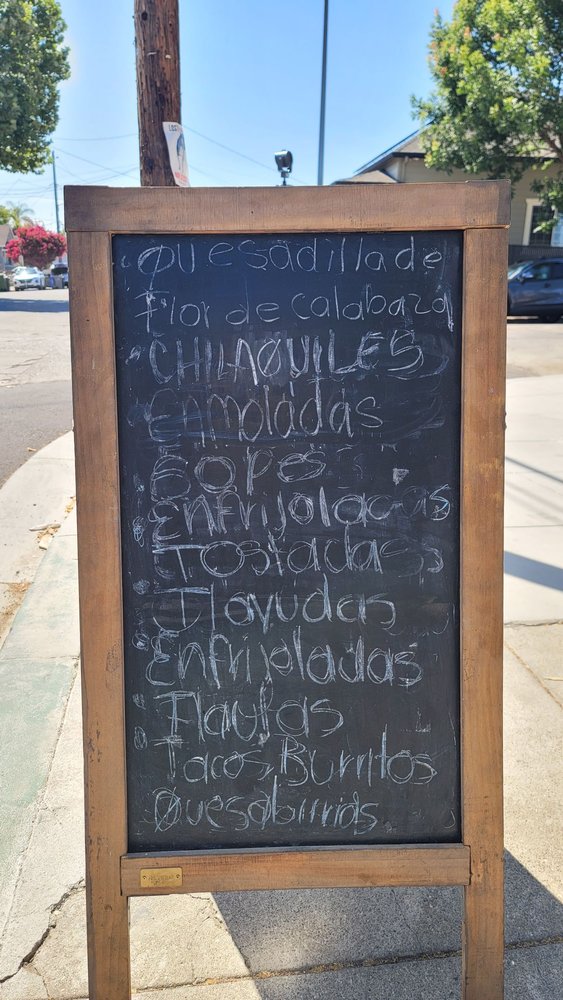 Quesadilla de
Flor de calabaza
CHILAQUILES
Enmoladas
Sopes
Enfrijoladas
Tostadas
Tlayudas
Enfrijoladas
Flautas
Tacos, Burritos
Quesabirrias